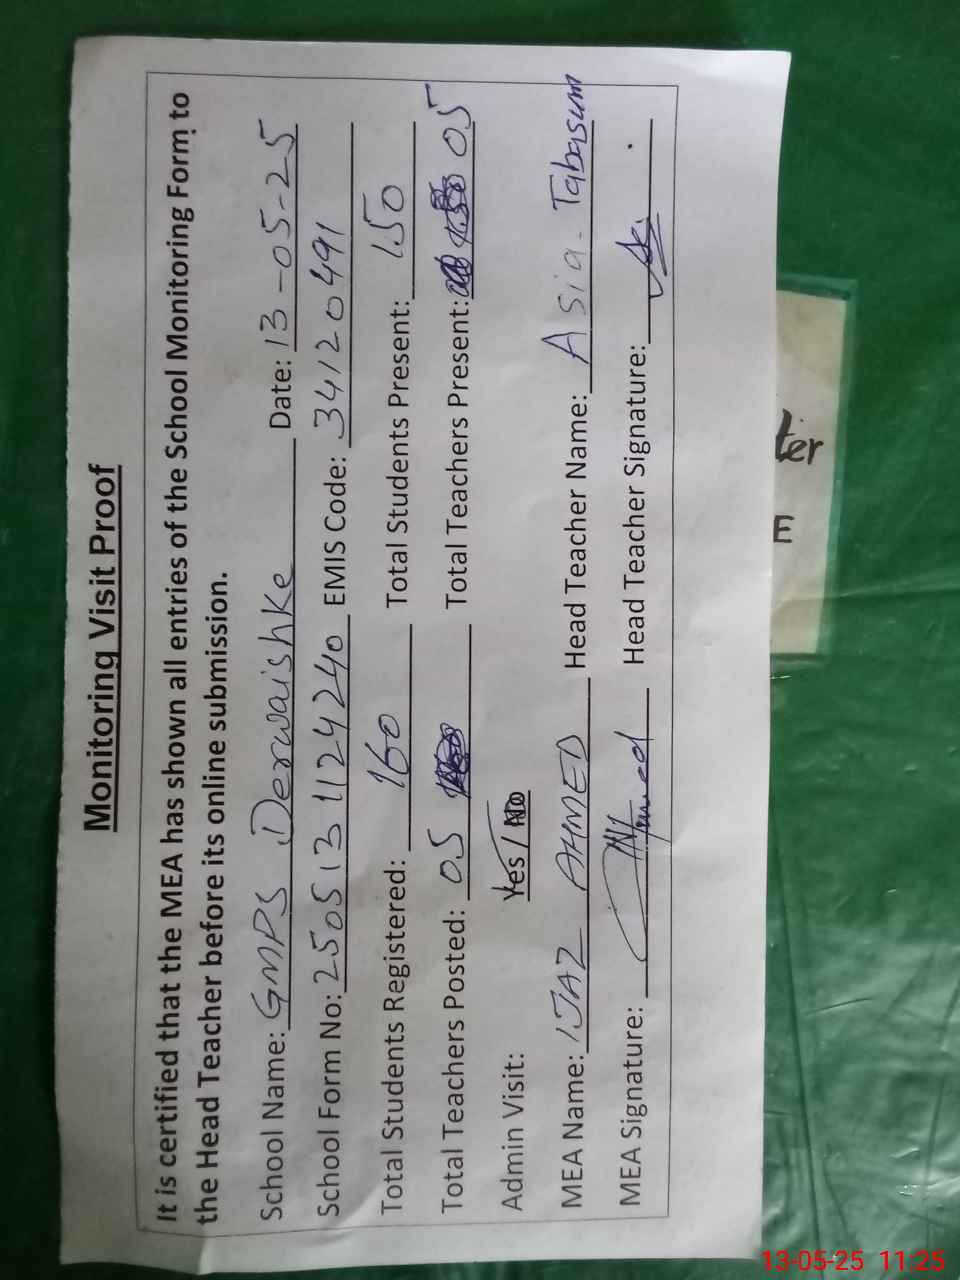 Monitoring Visit Proof
It is certified that the MEA has shown all entries of the School Monitoring Form to
the Head Teacher before its online submission.
School Name: GMPS Derwaishke Date: 13-05-25
School Form No: 2505131124240 EMIS Code: 34120491
Total Students Registered: 160 Total Students Present: 150
Total Teachers Posted: 05 Total Teachers Present: 05
Admin Visit: Yes / No
MEA Name: IJAZ AHMED Head Teacher Name: Asia Tabasum
MEA Signature: Head Teacher Signature:
ter
E
13-05-25 11:25